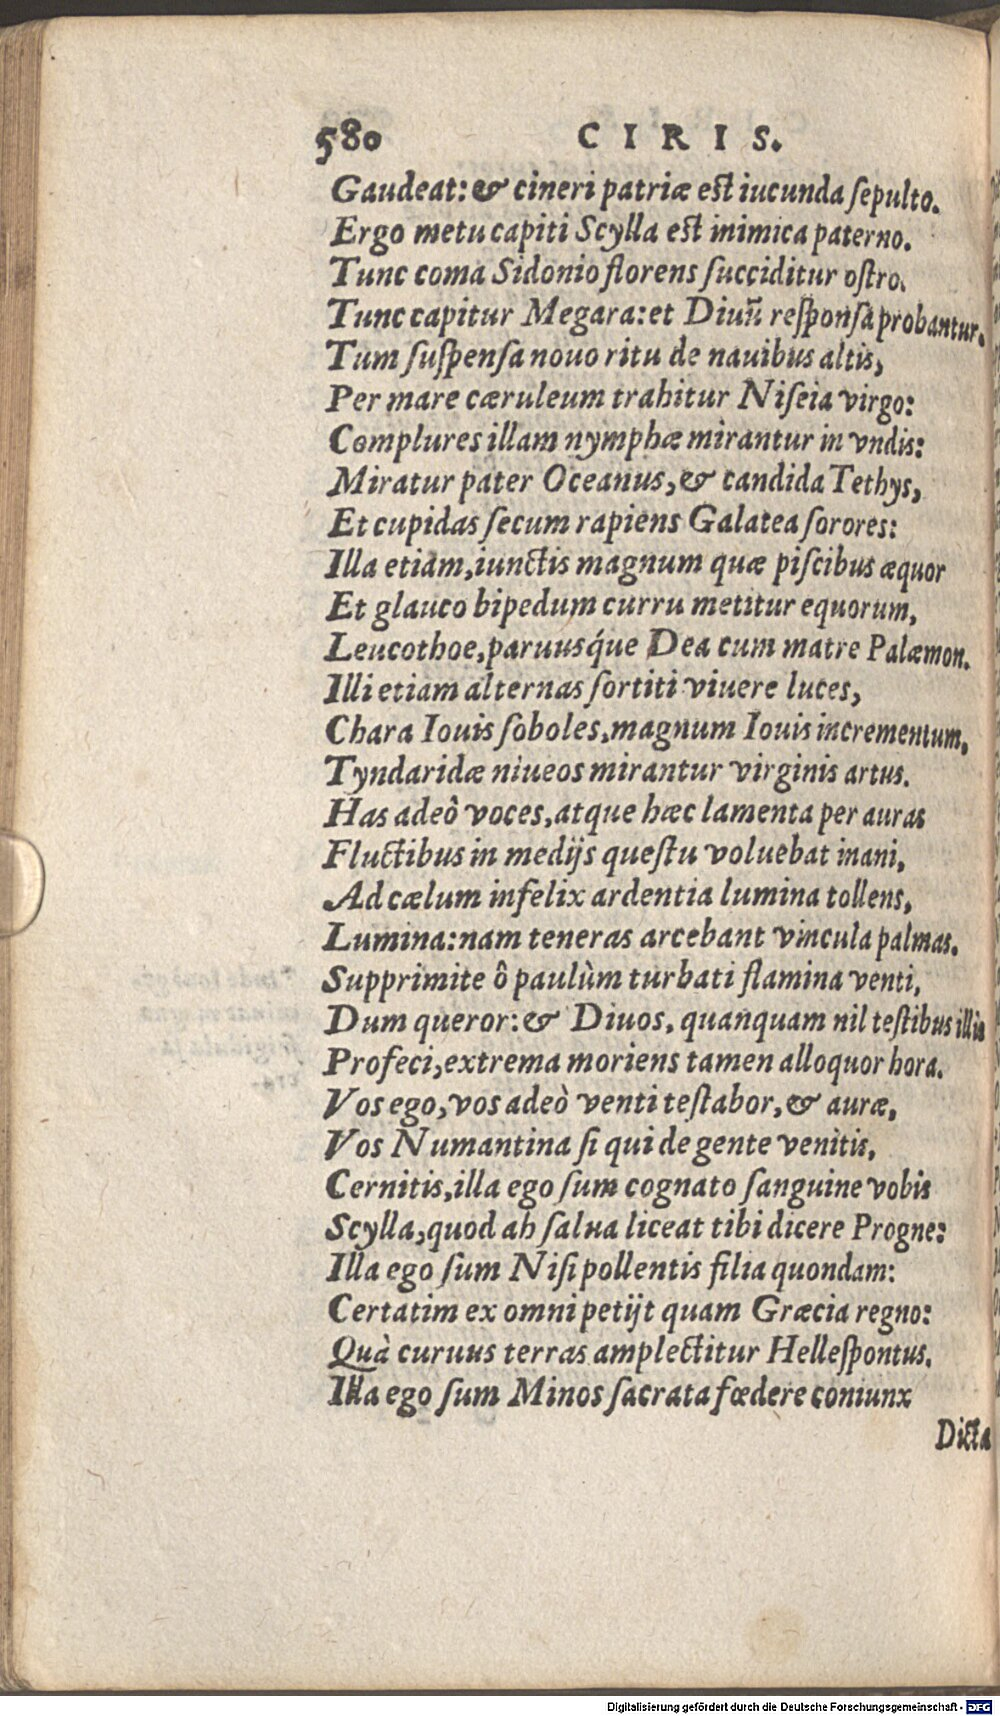 580 CIRIS.
Gaudeat: & cineri patriæ est iucunda ſepulto.
Ergo metu capiti Scylla est inimica paterno.
Tunc coma Sidonio florens ſucciditur oſtro.
Tunc capitur Megara: et Diuũ reſponſa probantur.
Tum ſuſpenſa nouo ritu de nauibus altis,
Per mare cæruleum trahitur Niſeia virgo:
Complures illam nymphæ mirantur in vndis:
Miratur pater Oceanus, & candida Tethys,
Et cupidas ſecum rapiens Galatea ſorores:
Illa etiam, iunctis magnum quæ piſcibus æquor
Et glauco bipedum curru metitur equorum,
Leucothoe, paruusq́ue Dea cum matre Palæmon.
Illi etiam alternas ſortiti viuere luces,
Chara Iouis ſoboles, magnum Iouis incrementum,
Tyndaridæ niueos mirantur virginis artus.
Has adeò voces, atque hæc lamenta per auras
Fluctibus in medijs queſtu voluebat inani,
Ad cælum infelix ardentia lumina tollens,
Lumina: nam teneras arcebant vincula palmas.
Supprimite ô paulùm turbati flamina venti,
Dum queror: & Diuos, quanquam nil teſtibus illis
Profeci, extrema moriens tamen alloquor hora.
Vos ego, vos adeò venti teſtabor, & auræ,
Vos Numantina ſi qui de gente venitis,
Cernitis, illa ego ſum cognato ſanguine vobis
Scylla, quod ah ſalua liceat tibi dicere Progne:
Illa ego ſum Niſi pollentis filia quondam:
Certatim ex omni petijt quam Græcia regno:
Quà curuus terras amplectitur Helleſpontus.
Illa ego ſum Minos ſacrata fœdere coniunx
Dicta
Digitalisierung gefördert durch die Deutsche Forschungsgemeinschaft - DFG